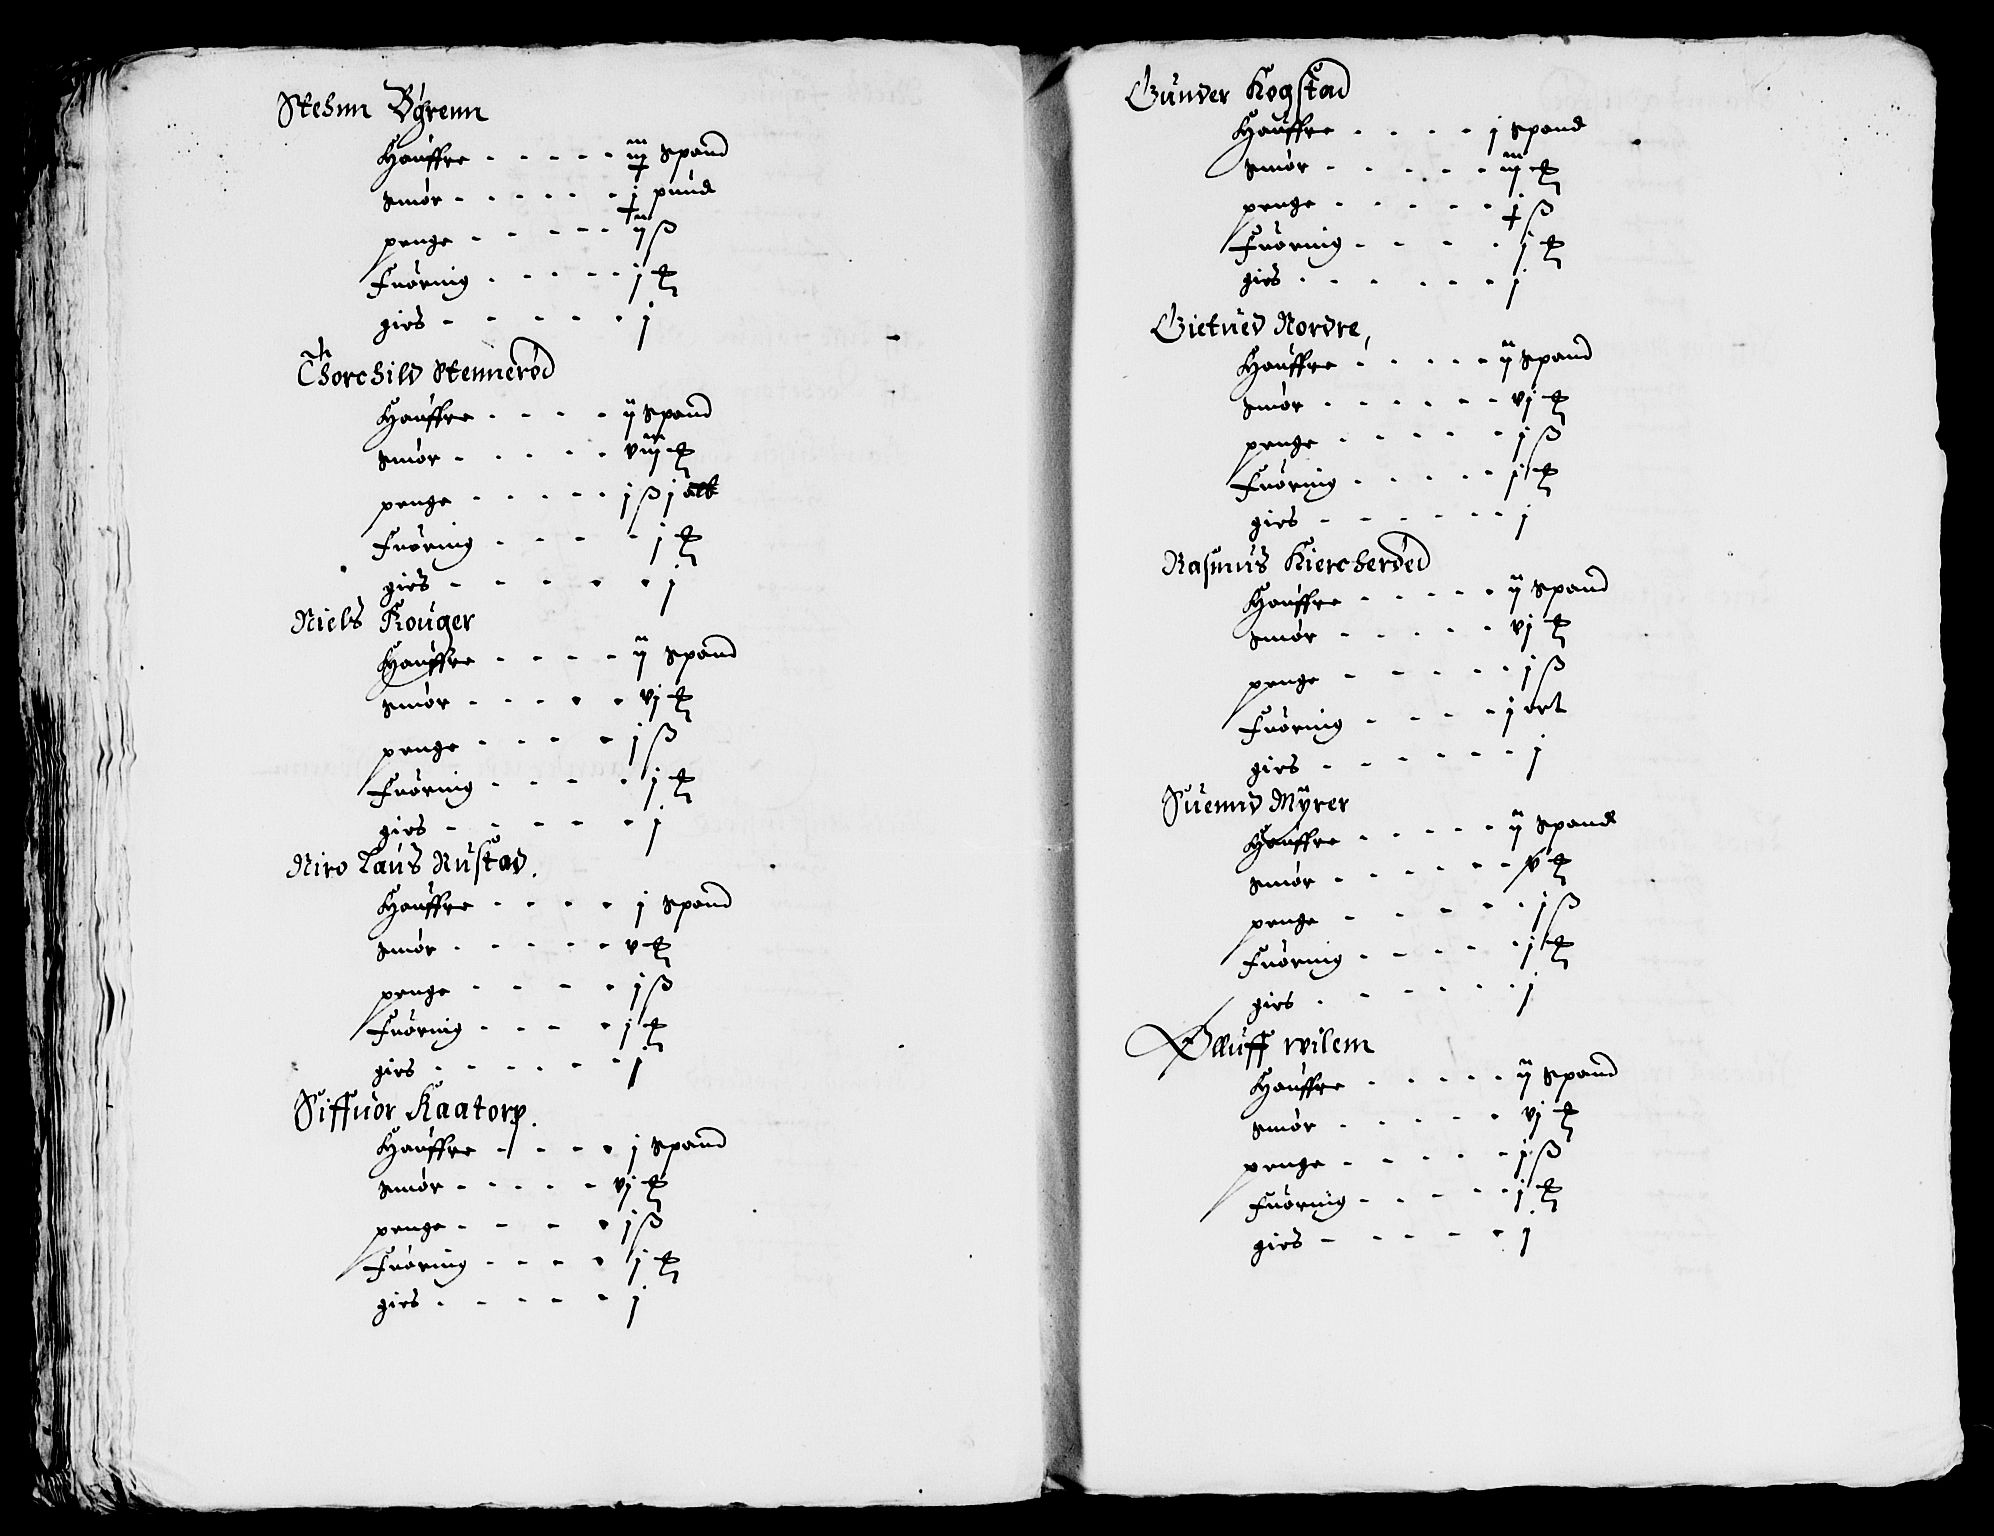 Stehnn Bÿrenn
Hauffre - - - - - iij Spand
Smør - - - - - - j pund
penge - - - - - ij ß
Fuöring - - - - - j ℔
gies - - - - - - j
Thorchild Stennerød
Hauffre - - - - ij Spand
Smør - - - - - viij ℔
penge - - - - - j ß j alb
Fuöring - - - - j ℔
gies - - - - - - j
Niels Krouger
Hauffre - - - - ij Spand
Smør - - - - - vj ℔
penge - - - - j ß
Fuöring - - - - j ℔
gies - - - - - j
Niro Laus Rustad.
Hauffre - - - - j Spand
Smør - - - - - v ℔
penge - - - - j ß
Fuöring - - - - j ℔
gies - - - - - - j
Siffuor Kaatorp.
Hauffre - - - - j Spand
Smør - - - - - vj ℔
penge - - - - j ß
Fuöring - - - - j ℔
gies - - - - - j
Gunder Kogstad
Hauffre - - - - j Spand
Smør - - - - - iij ℔
penge - - - - - j ß
Fuöring - - - - j ℔
gies - - - - - - j
Gietued Nordre,
Hauffre - - - - - ij Spand
Smør - - - - - - vj ℔
penge - - - - - j ß
Fuöring - - - - - j ℔
gies - - - - - - j
Rasmus Kiercherød
Hauffre - - - - - ij Spand
Smør - - - - - vj ℔
penge - - - - - j ß
Fuöring - - - - j ort
gies - - - - - - j
Suennd Mÿrer
Hauffre - - - - - ij Spand
Smør - - - - - - v ℔
penge - - - - - j ß
Fuöring - - - - - j ℔
gies - - - - - - j
Olluff wilem
Hauffre - - - - - ij Spand
Smør - - - - - vj ℔
penge - - - - - j ß
Fuöring - - - - - j ℔
gies - - - - - j